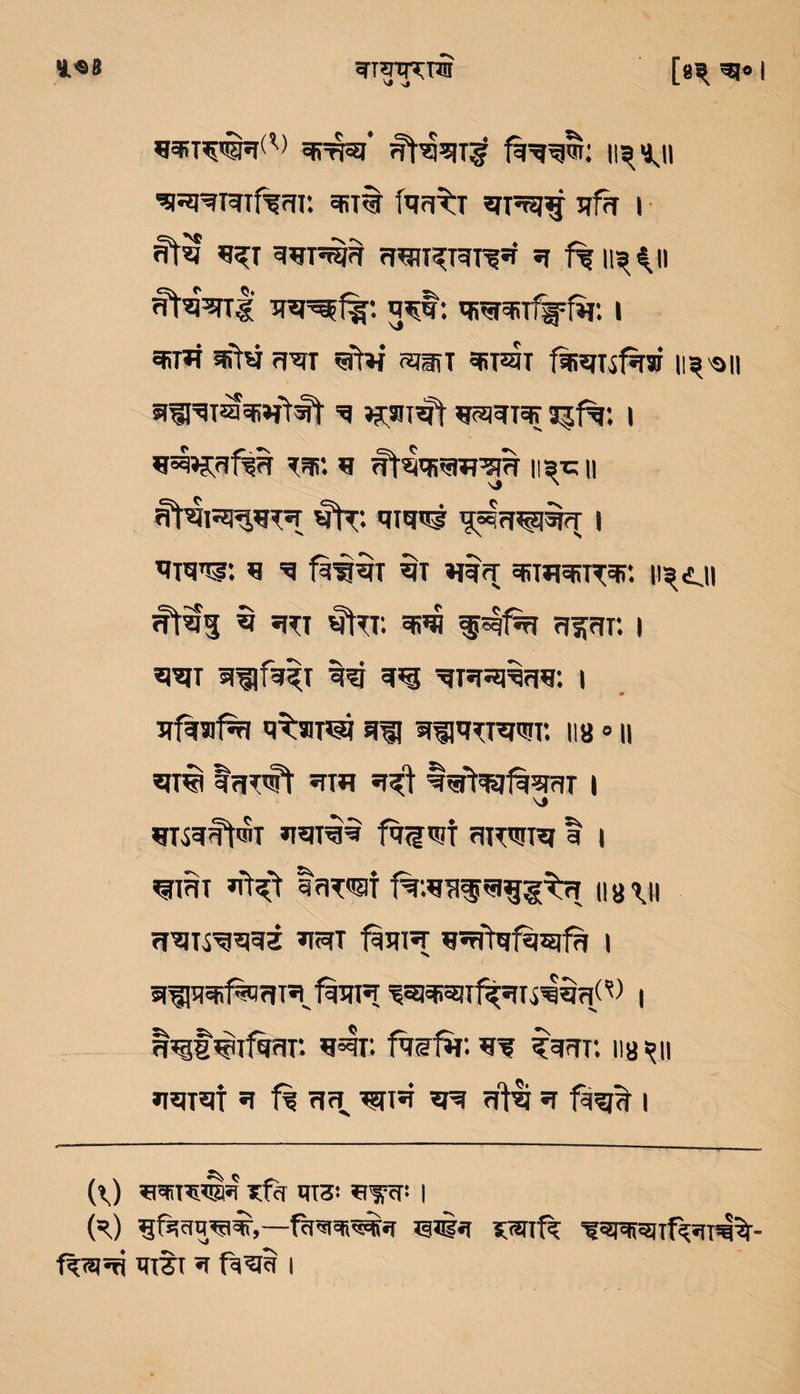 ५७४ वायुपुराणे [४३ अ०।
सकारण्येन(१) कर्त्तव्यं तीर्थश्राद्धं विचक्षणैः ॥३५॥
अन्यत्रावाहिताः काले पितरो यान्त्यमुं प्रति ।
तीर्थे सदा वसन्त्येते तस्मादावाहनं न हि ॥३६॥
तीर्थश्राद्धं प्रयच्छद्भिः पुरुषैः फलकाङ्क्षिभिः ।
कामं क्रोधं तथा लोभं त्यक्त्वा कार्या क्रियाऽनिशं ॥३७॥
ब्रह्मचार्य्येकभोजी च भूशायी सत्यवाक् शुचिः ।
सर्वभूतहिते रक्तः स तीर्थफलमश्नुते ॥३८॥
तीर्थान्यनुसरन् धीरः पाषण्डं पूर्व्वतस्त्यजेत् ।
पाषण्डः स च विज्ञेयो यो भवेत् कामकारकः ॥३९॥
तीर्थेषु ये नरा धीराः कर्म्म कुर्व्वन्ति तद्गताः ।
यथा ब्रह्मविदो वेद्यं वस्तु चानन्यचेतसः ।
प्रविशन्ति परेशाख्यं ब्रह्म ब्रह्मपरायणाः ॥४०॥
यासौ वैतरणी नाम नदी त्रैलोक्यविश्रुता ।
साऽवतीर्णा गयाक्षेत्रे पितॄणां तारणाय वै ।
स्नातो गोदो वैतरण्यां त्रिःसप्तकुलमुद्धरेत् ॥४१॥
तथाऽक्षयवटं गत्वा विप्रान् सन्तोषयिष्यति ।
ब्रह्मप्रकल्पितान् विप्रान् हव्यकव्यादिनाऽर्च्चयेत्(२) ।
तैस्तुष्टैस्तोषिताः सर्व्वाः पितृभिः सह देवताः ॥४२॥
गयायां न हि तत् स्थानं यत्र तीर्थं न विद्यते ।
(१) सकारुण्येन इति पाठः सङ्गतः ।
(२) मुद्रितपुस्तके,— इत्यादि हव्यकव्यादिनार्च्चये-
दित्यन्तं पाठो न विद्यते ।